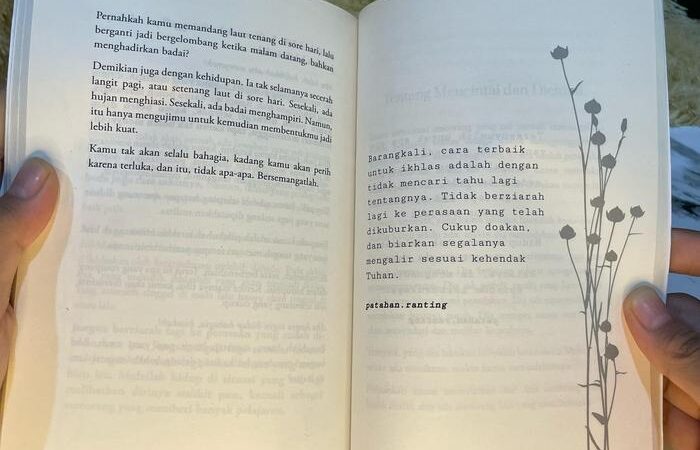 Pernahkah kamu memandang laut tenang di sore hari, lalu
berganti jadi bergelombang ketika malam datang, bahkan
menghadirkan badai?
Demikian juga dengan kehidupan. Ia tak selamanya secerah
langit pagi, atau setenang laut di sore hari. Sesekali, ada
hujan menghiasi. Sesekali, ada badai menghampiri. Namun,
itu hanya mengujimu untuk kemudian membentukmu jadi
lebih kuat.
Kamu tak akan selalu bahagia, kadang kamu akan perih
karena terluka, dan itu, tidak apa-apa. Bersemangatlah.
Barangkali, cara terbaik
untuk ikhlas adalah dengan
tidak mencari tahu lagi
tentangnya. Tidak berziarah
lagi ke perasaan yang telah
dikuburkan. Cukup doakan,
dan biarkan segalanya
mengalir sesuai kehendak
Tuhan.
patahan.ranting